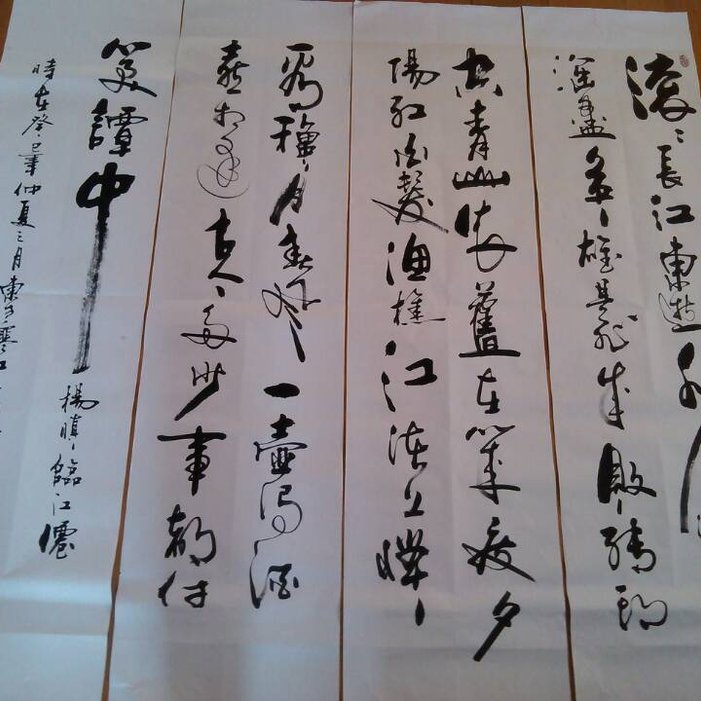 滾〻長江東逝水
淘盡英雄是非成敗轉頭
空青山依舊在幾度夕
陽紅白髮漁樵江渚上慣
看穐月春風一壺濁酒
喜相逢古今多少事都付
笑譚中 楊慎臨江僊
時在癸巳年仲夏之月東